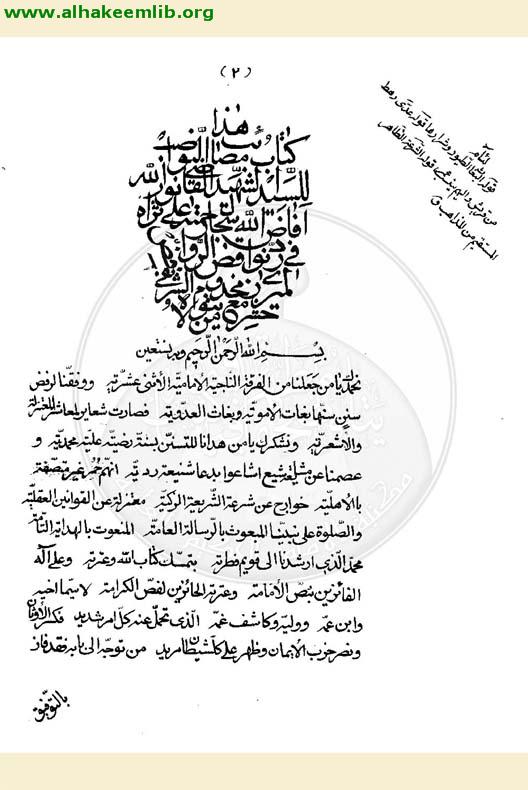 www.alhakeemlib.org
(٢)
هذا
كتاب مصائب النواصب
للسيد الشهيد القاضي نور الله
افاض الله سجال رحمته على ثراه
في رد نواقض الروافض
بسم الله الرحمن الرحيم وبه نستعين
نحمدك يا من جعلنا من الفرقة الناجية الامامية الاثنى عشرية ووفقنا لرفض
سنن سنتها بغات الاموية وبغات العدوية فصارت شعاير لمعاشر المعتزلة
والاشعرية ونشكرك يا من هدانا للتسنن بسنة رضية علية محمدية و
عصمنا عن متابعة شيع اشاعوا بدعا شنيعة ردية انهم حمر غير متصفة
بالاهلية خوارج عن شرعة الشريعة الزكية معتزلة عن القوانين العقلية
والصلوة على نبينا المبعوث بالرسالة العامة المنعوت بالهداية التامة
محمد الذي ارشدنا الى قويم فطرته بتمسك كتاب الله وعترته وعلى آله
الفائزين بنص الامامة وعترته الحائزين لفص الكرامة لا سيما اخيه
وابن عمه ووليه وكاشف غمه الذي تحمل عنه كل امر شديد فكسر الاوثان
ونصر حزب الايمان وظهر على كل شيطان مريد من توجه الى بابه فقد فاز
بالتوفيق